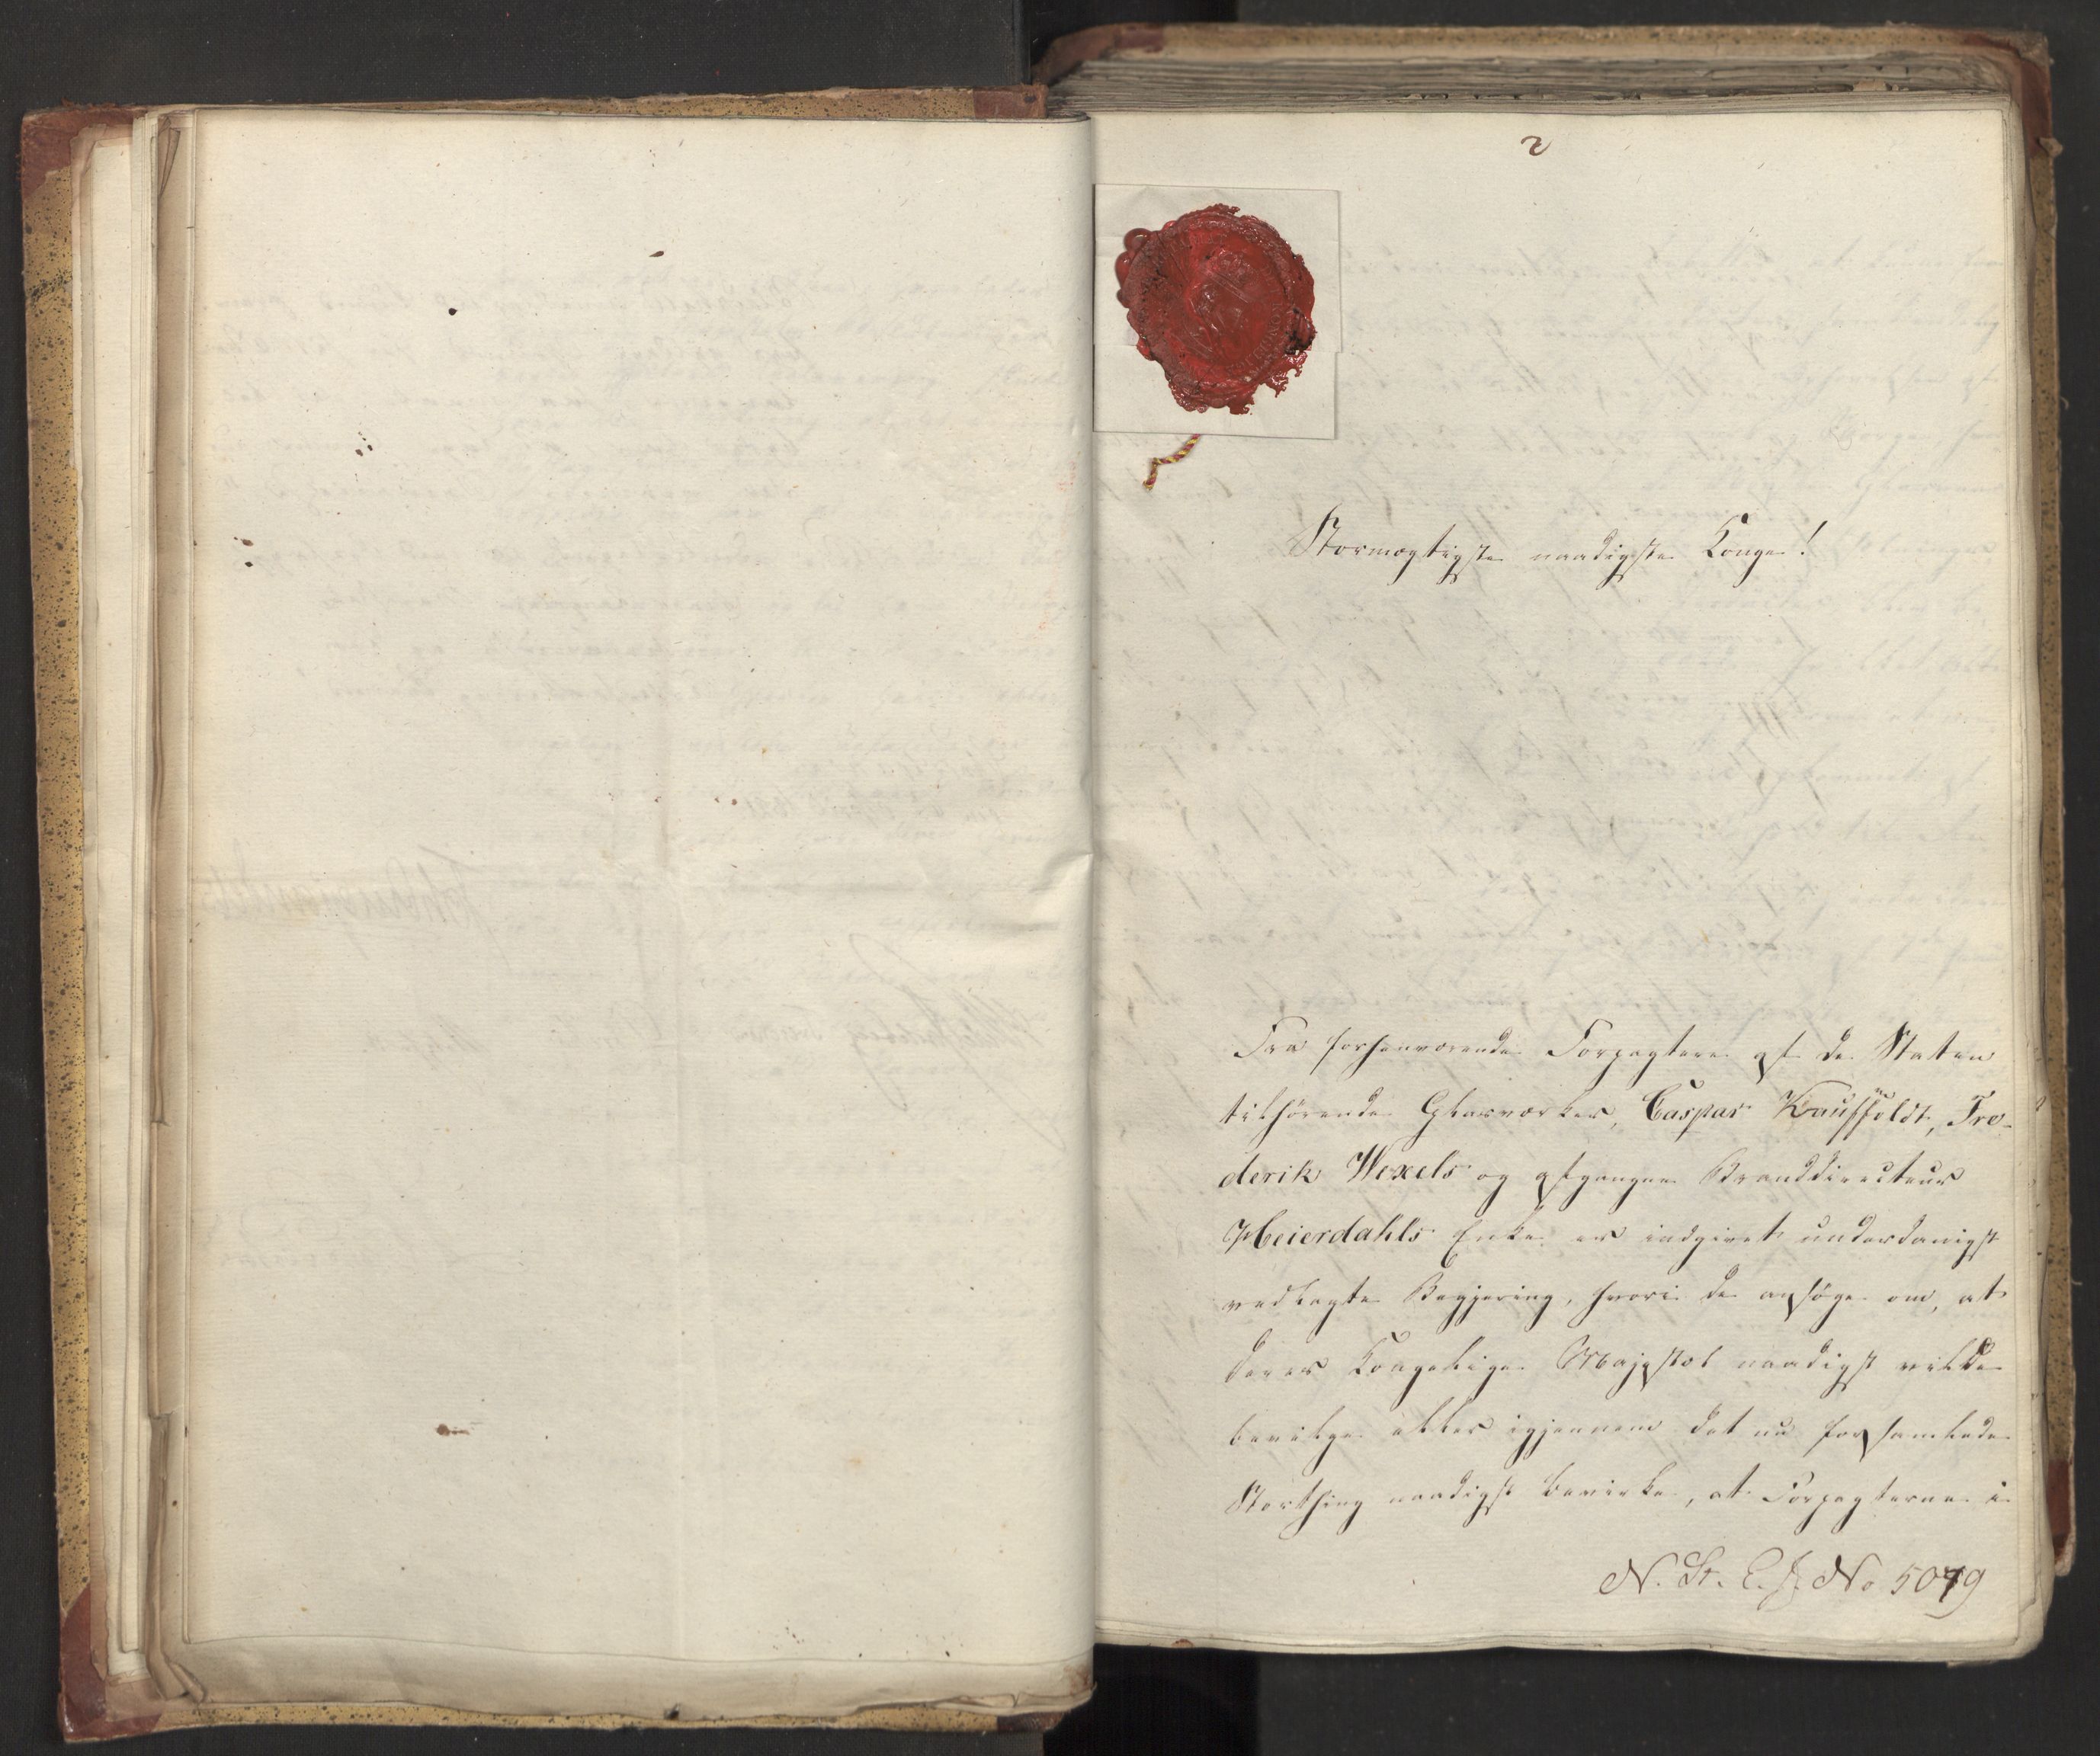 2
Stormægtigste naadigste Konge!
Fra forhenværende Forpagtere af de Staten
tilhørende Glasværker, Caspar Kauffeldt, Fre-
derik Wexels og afgangne Branddirecteur
Heierdahls Enke er indgivet underdanigst
vedlagte Begjæring, hvori de ansøge om, at
Deres Kongelige Majestæt naadigst vilde
bevilge eller igjennem det nu forsamlede
Storthing naadigst bevirke, at Forpagterne i
N. St. C. J. No 5079